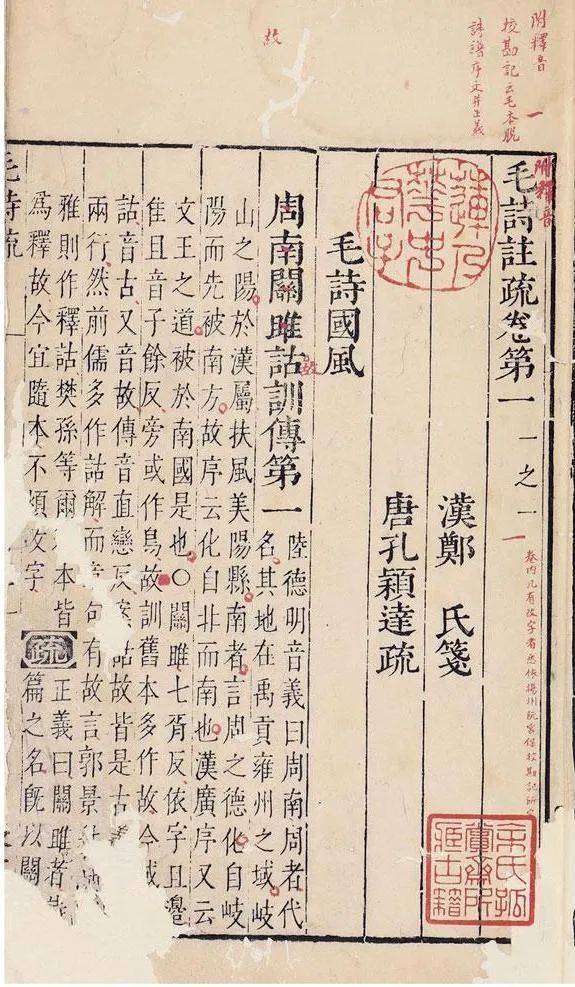 附釋音 一
校勘記云毛本脫
詩譜序文并正義
故
附釋音
毛詩註疏卷第一 一之一
一
卷內凡有改字者悉依揚州阮宮保校勘記所
漢鄭 氏箋
唐孔穎達疏
毛詩國風
周南關雎詁訓傳第一 陸德明音義曰周南周者代
故
名其地在禹貢雍州之域岐
山之陽於漢屬扶風美陽縣南者言周之德化自岐
陽而先被南方故序云化自北而南也漢廣序又云
文王之道被於南國是也〇關雎七胥反依字且邊
隹且音子餘反旁或作鳥故訓舊本多作故今或
詁音古又音故傳音直戀反案詁故皆是古
兩行然前儒多作詁解而章句有故言郭景
雅則作釋詁樊孫等爾 本皆
爲釋故今宜隨本不煩改字 疏 正義曰關雎者
篇之名旣以關
毛詩疏